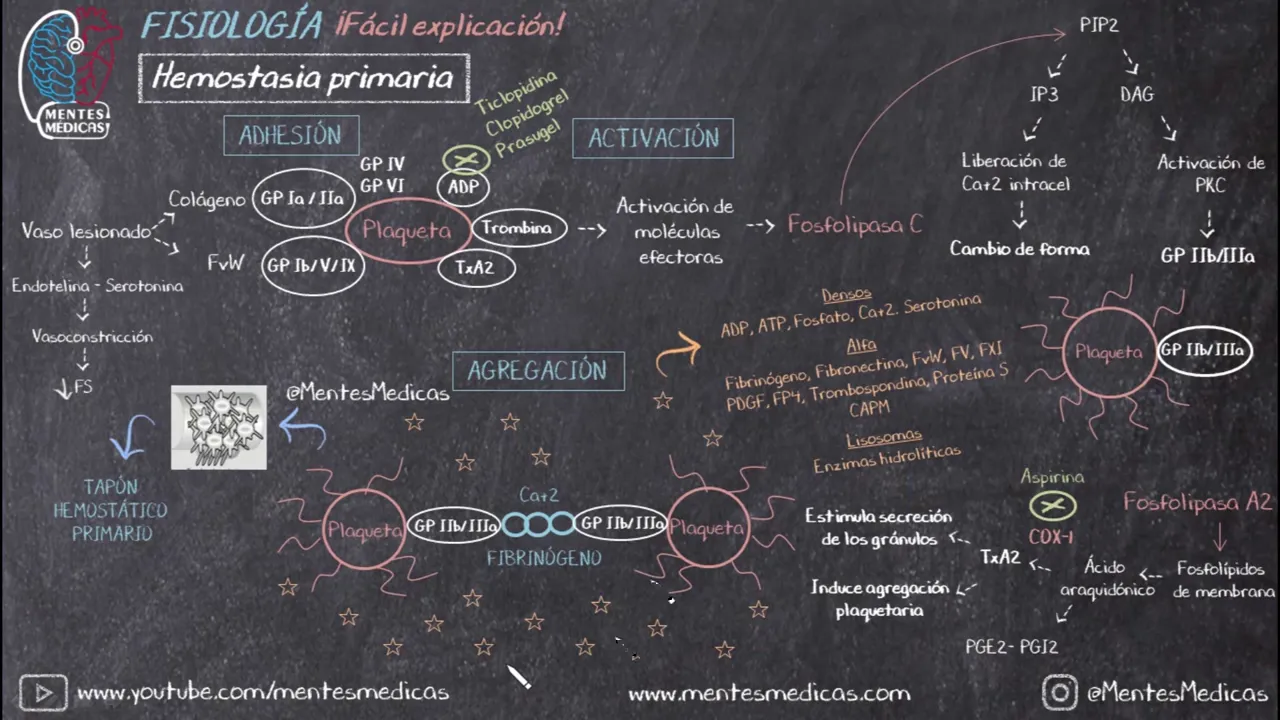 FISIOLOGÍA ¡Fácil explicación!
Hemostasia primaria
MENTES
MÉDICAS
ADHESIÓN
Ticlopidina
Clopidogrel
Prasugel
ACTIVACIÓN
GP IV
GP VI
ADP
Colágeno
GP Ia / IIa
Plaqueta
Trombina
TxA2
Vaso lesionado
FvW
GP Ib/V/IX
Endotelina - Serotonina
Vasoconstricción
FS
Activación de
moléculas
efectoras
Fosfolipasa C
PIP2
IP3
DAG
Liberación de
Ca+2 intracel
Cambio de forma
Activación de
PKC
GP IIb/IIIa
Plaqueta
GP IIb/IIIa
Densos
ADP, ATP, Fosfato, Ca+2. Serotonina
Alfa
Fibrinógeno, Fibronectina, FvW, FV, FXI
PDGF, FP4, Trombospondina, Proteína S
CAPM
Lisosomas
Enzimas hidrolíticas
AGREGACIÓN
@MentesMedicas
TAPÓN
HEMOSTÁTICO
PRIMARIO
Plaqueta
GP IIb/IIIa
Ca+2
FIBRINÓGENO
GP IIb/IIIa
Plaqueta
Aspirina
COX-1
Fosfolipasa A2
Fosfolípidos
de membrana
Ácido
araquidónico
TxA2
Estimula secreción
de los gránulos
Induce agregación
plaquetaria
PGE2- PGI2
www.youtube.com/mentesmedicas
www.mentesmedicas.com
@MentesMedicas